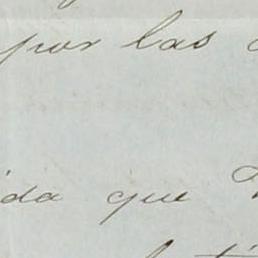 por las
ida que